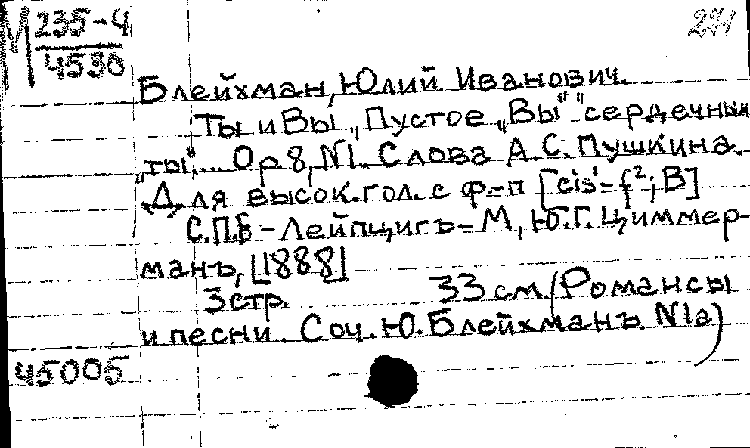 М 235-4
4530
271
Блейхман, Юлий Иванович.
Ты и Вы „Пустое „Вы" "сердечным
„ты"... Op 8, N1. Слова А.С. Пушкина.
Для высок. гол. с ф-п [cis¹-f²; B]
С.П.Б - Лейпцигъ - М, Ю.Г. Циммер-
манъ, [1888]
3 стр. 33 см (Романсы
и песни. Соч. Ю. Блейхманъ N1a)
45005